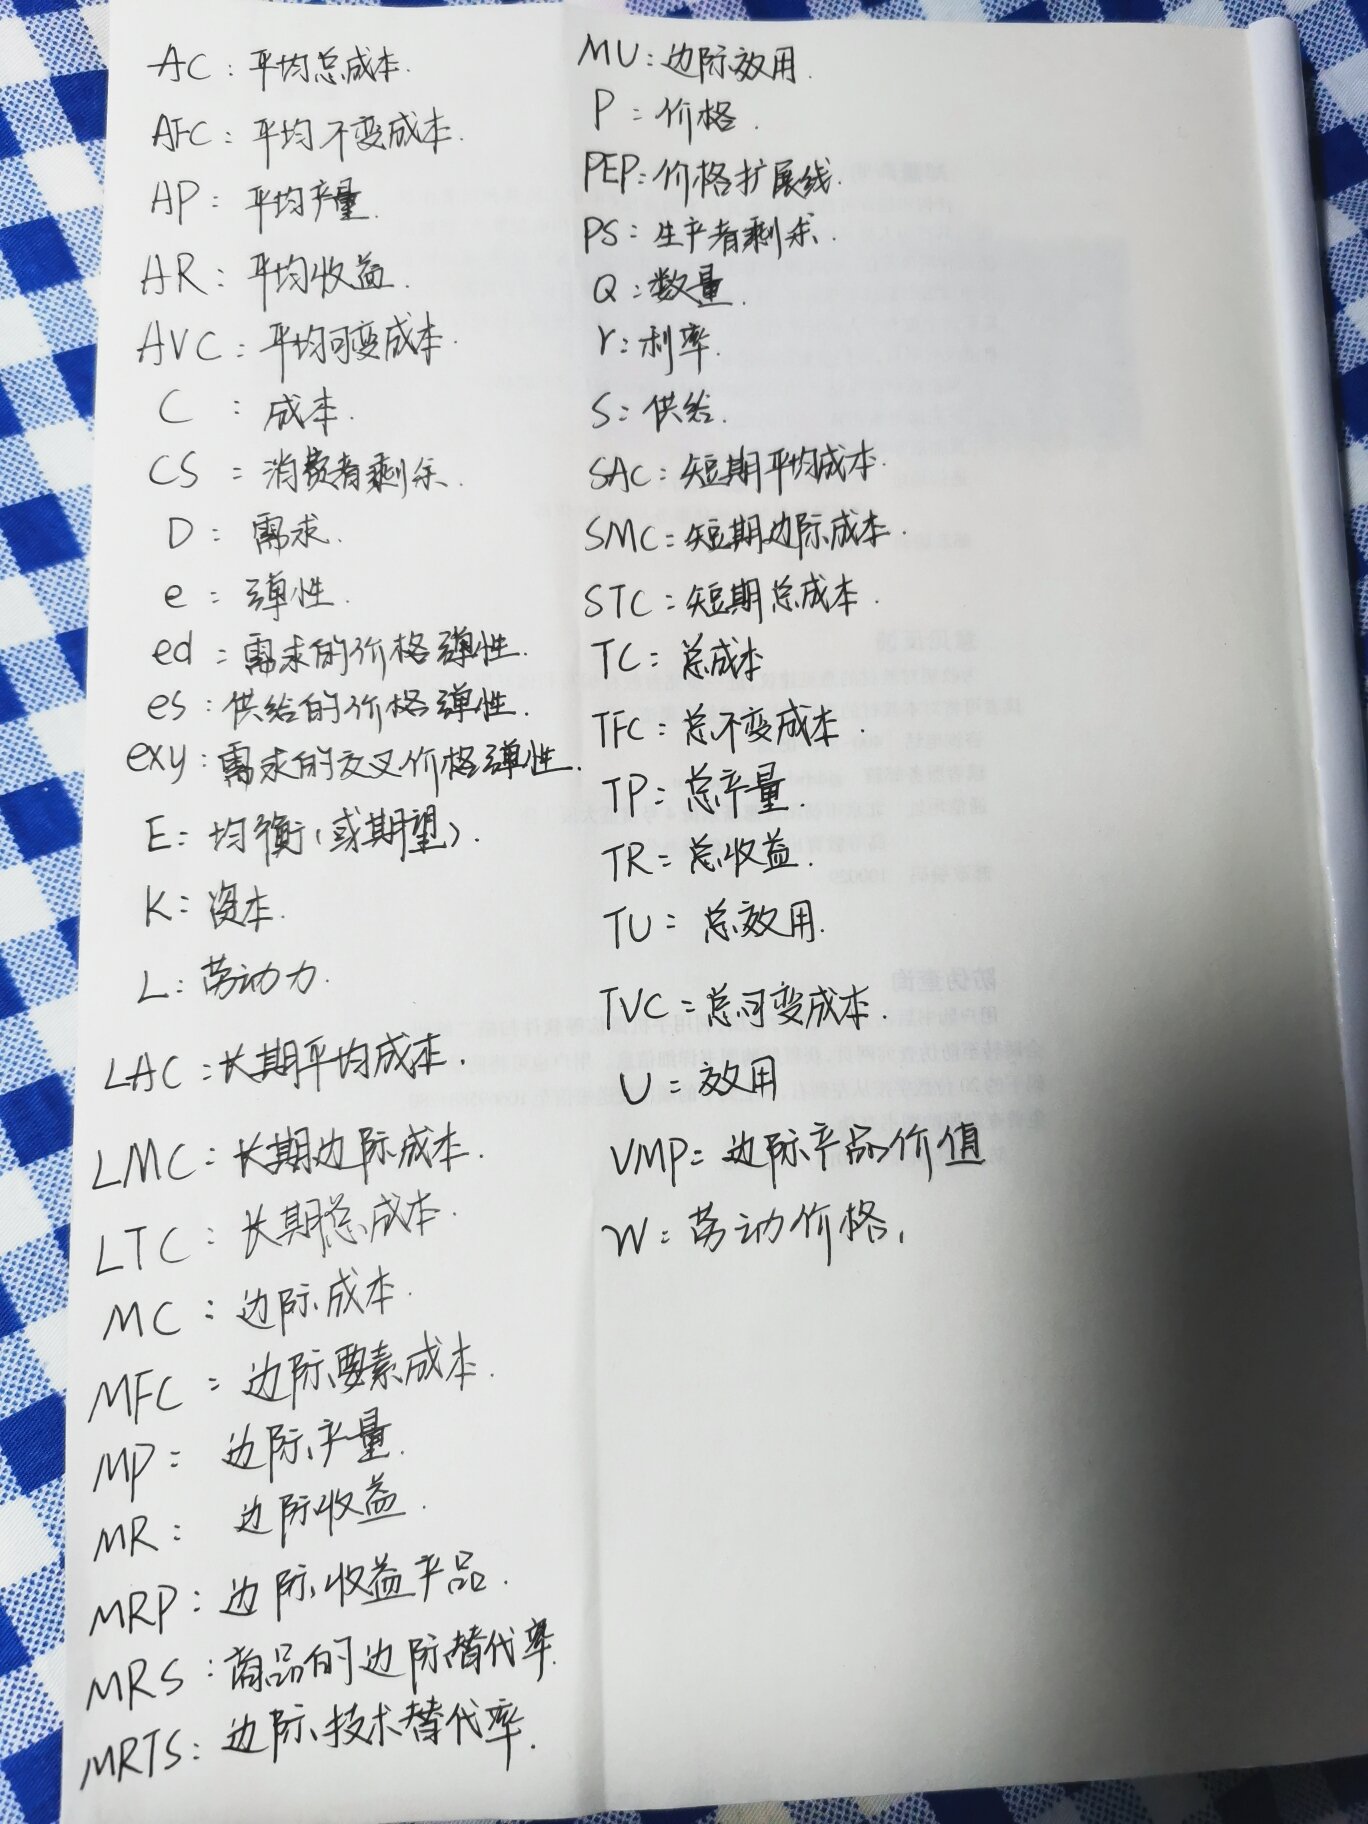 AC：平均总成本.
AFC：平均不变成本.
AP：平均产量.
AR：平均收益.
AVC：平均可变成本.
C：成本.
CS：消费者剩余.
D：需求.
e：弹性.
ed：需求的价格弹性.
es：供给的价格弹性.
exy：需求的交叉价格弹性.
E：均衡（或期望）.
K：资本.
L：劳动力.
LAC：长期平均成本.
LMC：长期边际成本.
LTC：长期总成本.
MC：边际成本.
MFC：边际要素成本.
MP：边际产量.
MR：边际收益.
MRP：边际收益产品.
MRS：商品的边际替代率.
MRTS：边际技术替代率.
MU：边际效用.
P：价格.
PEP：价格扩展线.
PS：生产者剩余.
Q：数量.
r：利率.
S：供给.
SAC：短期平均成本.
SMC：短期边际成本.
STC：短期总成本.
TC：总成本
TFC：总不变成本.
TP：总产量.
TR：总收益.
TU：总效用.
TVC：总可变成本.
U：效用
VMP：边际产品价值
W：劳动价格.